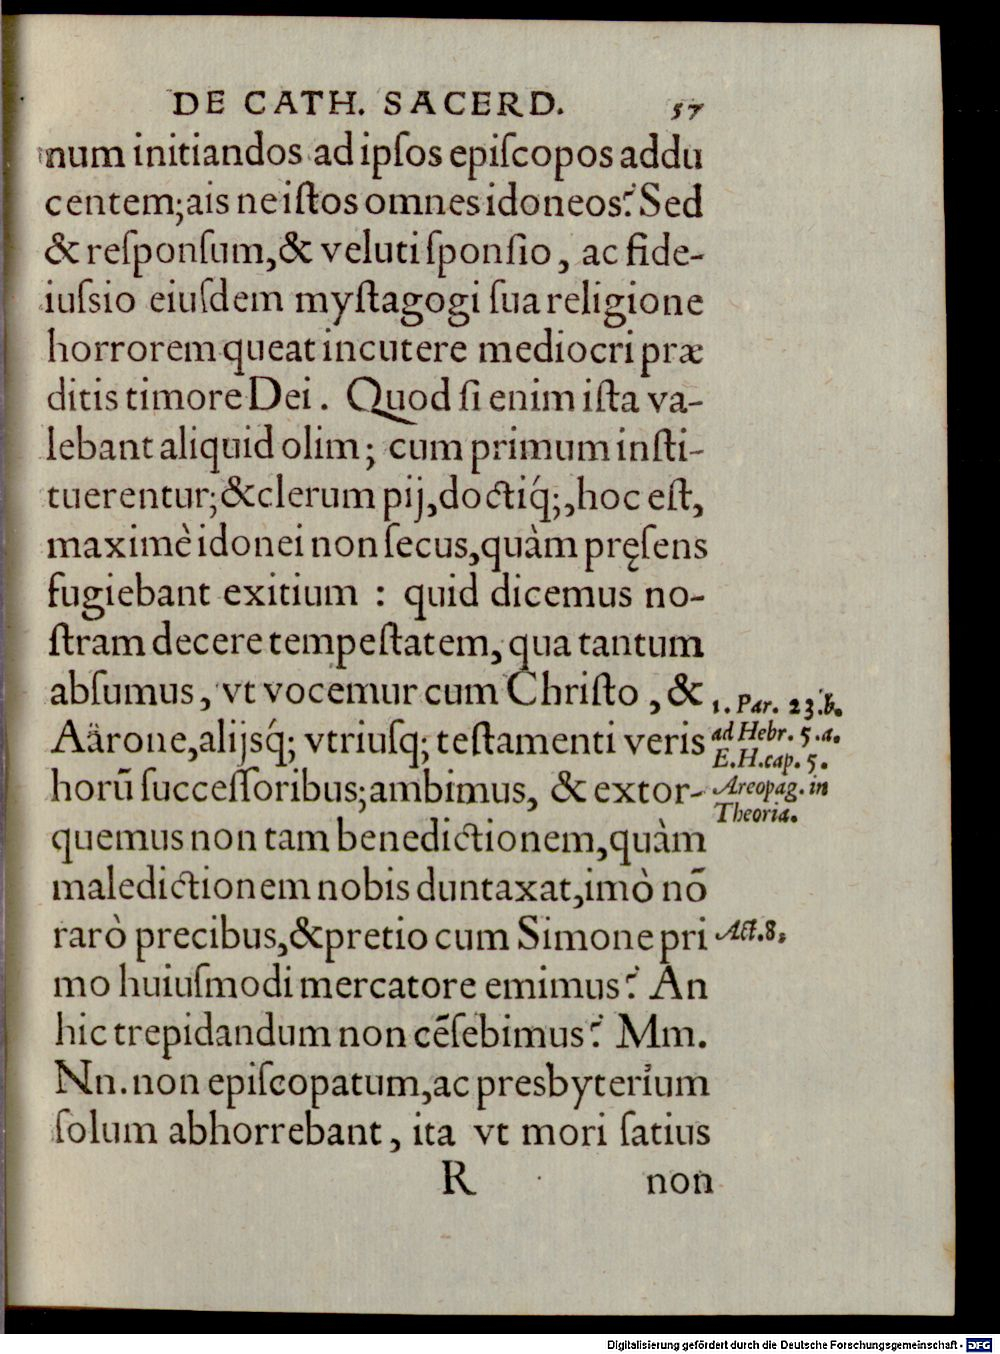 DE CATH. SACERD. 57
num initiandos ad ipſos epiſcopos addu
centem; ais ne iſtos omnes idoneos? Sed
& reſponſum, & veluti ſponſio, ac fide-
iuſsio eiuſdem myſtagogi ſua religione
horrorem queat incutere mediocri præ
ditis timore Dei. Quod ſi enim iſta va-
lebant aliquid olim; cum primum inſti-
tuerentur; & clerum pij, doctiq́;, hoc eſt,
maximè idonei non ſecus, quàm pręſens
fugiebant exitium : quid dicemus no-
ſtram decere tempeſtatem, qua tantum
abſumus, vt vocemur cum Chriſto, &
Aärone, alijsq́; vtriuſq; teſtamenti veris
horū ſucceſſoribus; ambimus, & extor-
quemus non tam benedictionem, quàm
maledictionem nobis duntaxat, imò nō
rarò precibus, & pretio cum Simone pri
mo huiuſmodi mercatore emimus? An
hic trepidandum non cēſebimus? Mm.
Nn. non epiſcopatum, ac presbyterium
ſolum abhorrebant, ita vt mori ſatius
R non
1. Par. 23.b.
ad Hebr. 5.a.
E.H.cap. 5.
Areopag. in
Theoria.
Act.8,
Digitalisierung gefördert durch die Deutsche Forschungsgemeinschaft - DFG